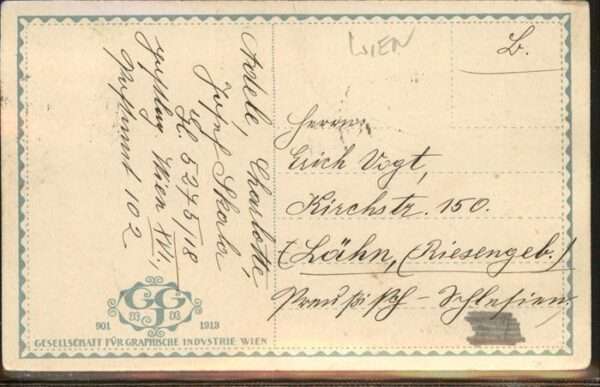 WIEN
B.
Herrn
Erich Vogt,
Kirchstr. 150.
(Lähn, (Riesengeb.)
Preußisch-Schlesien.
Adele, Charlotte,
Josef Skala
5275/18
Wien XVI.,
Postamt 102
GGJ
03 03
901 1913
GESELLSCHAFT FÜR GRAPHISCHE INDVSTRIE WIEN